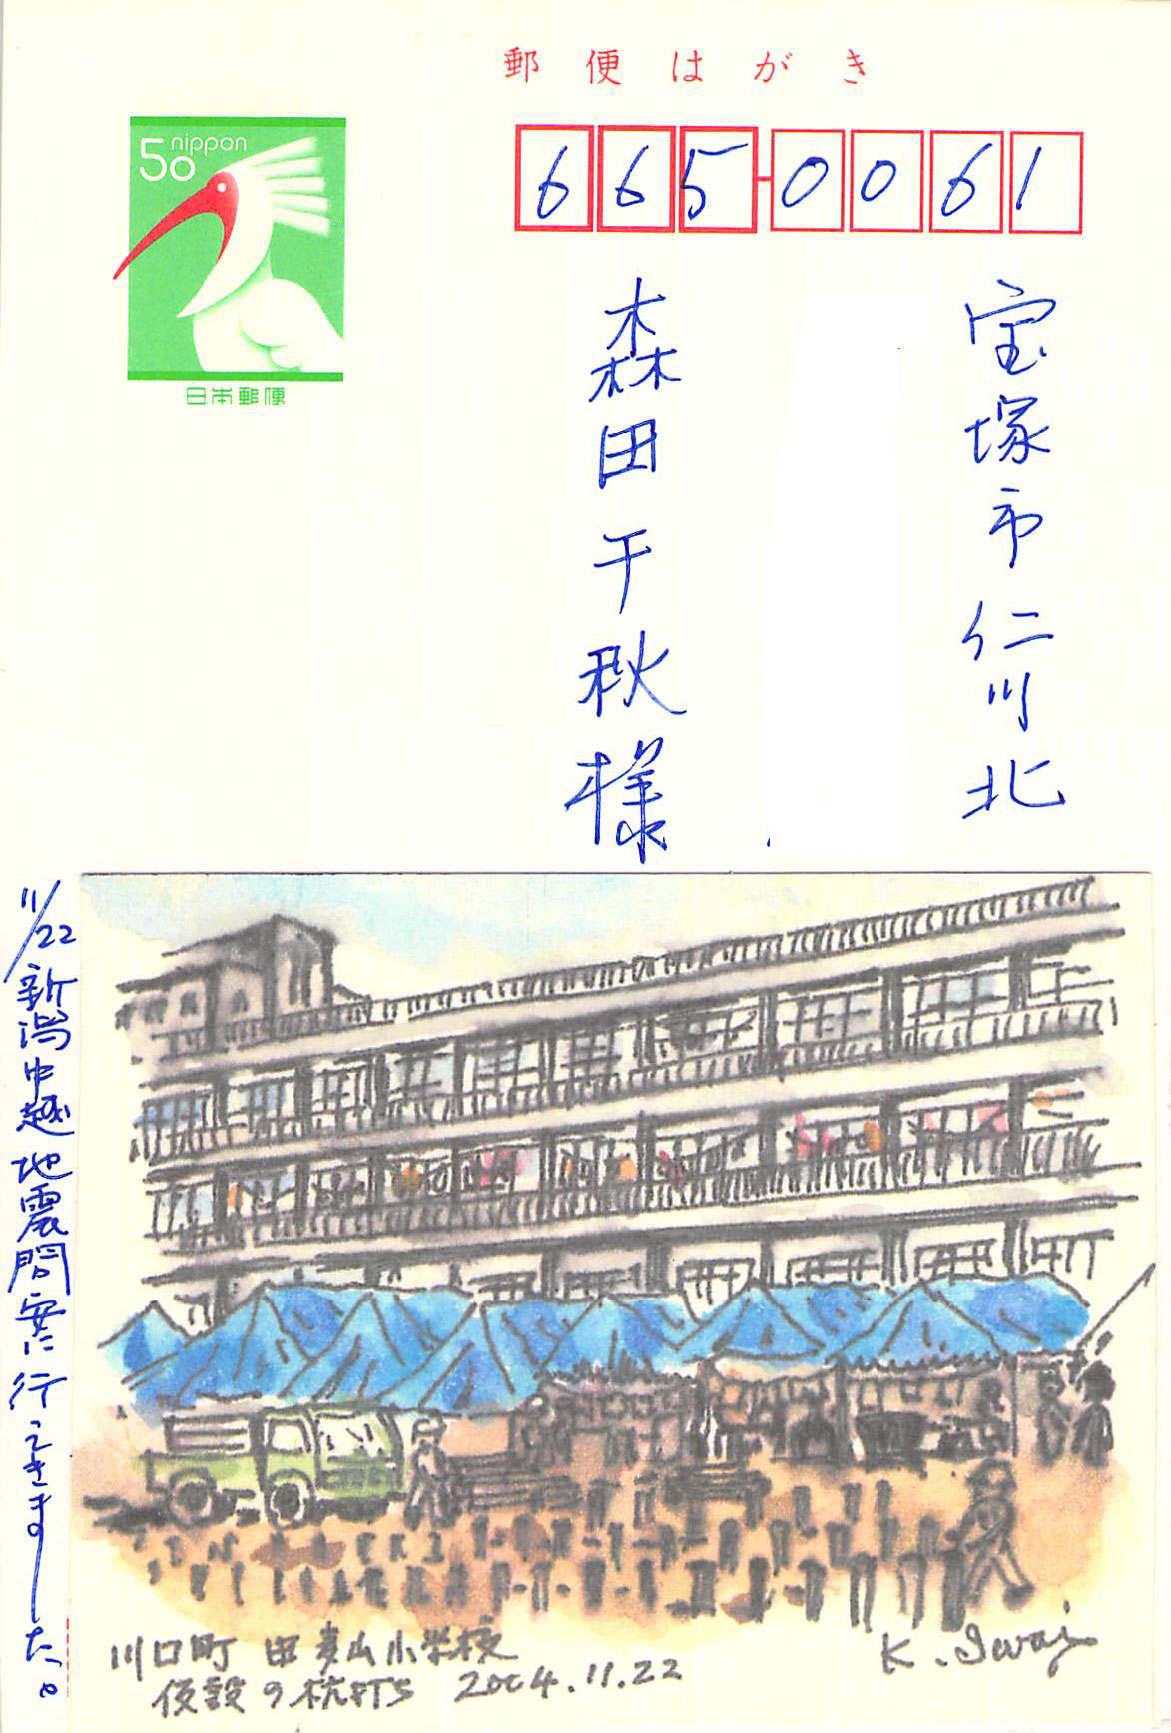 郵便はがき
50 nippon
日本郵便
665-0061
宝塚市仁川北
森田千秋様
11/22 新潟中越地震問安に行ってきました。
川口町 田麦山小学校
仮設の杭打ち 2004.11.22
K. Iwai